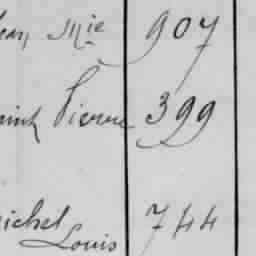 Jean Mie 907
Saint Pierre 399
Michel Louis 744